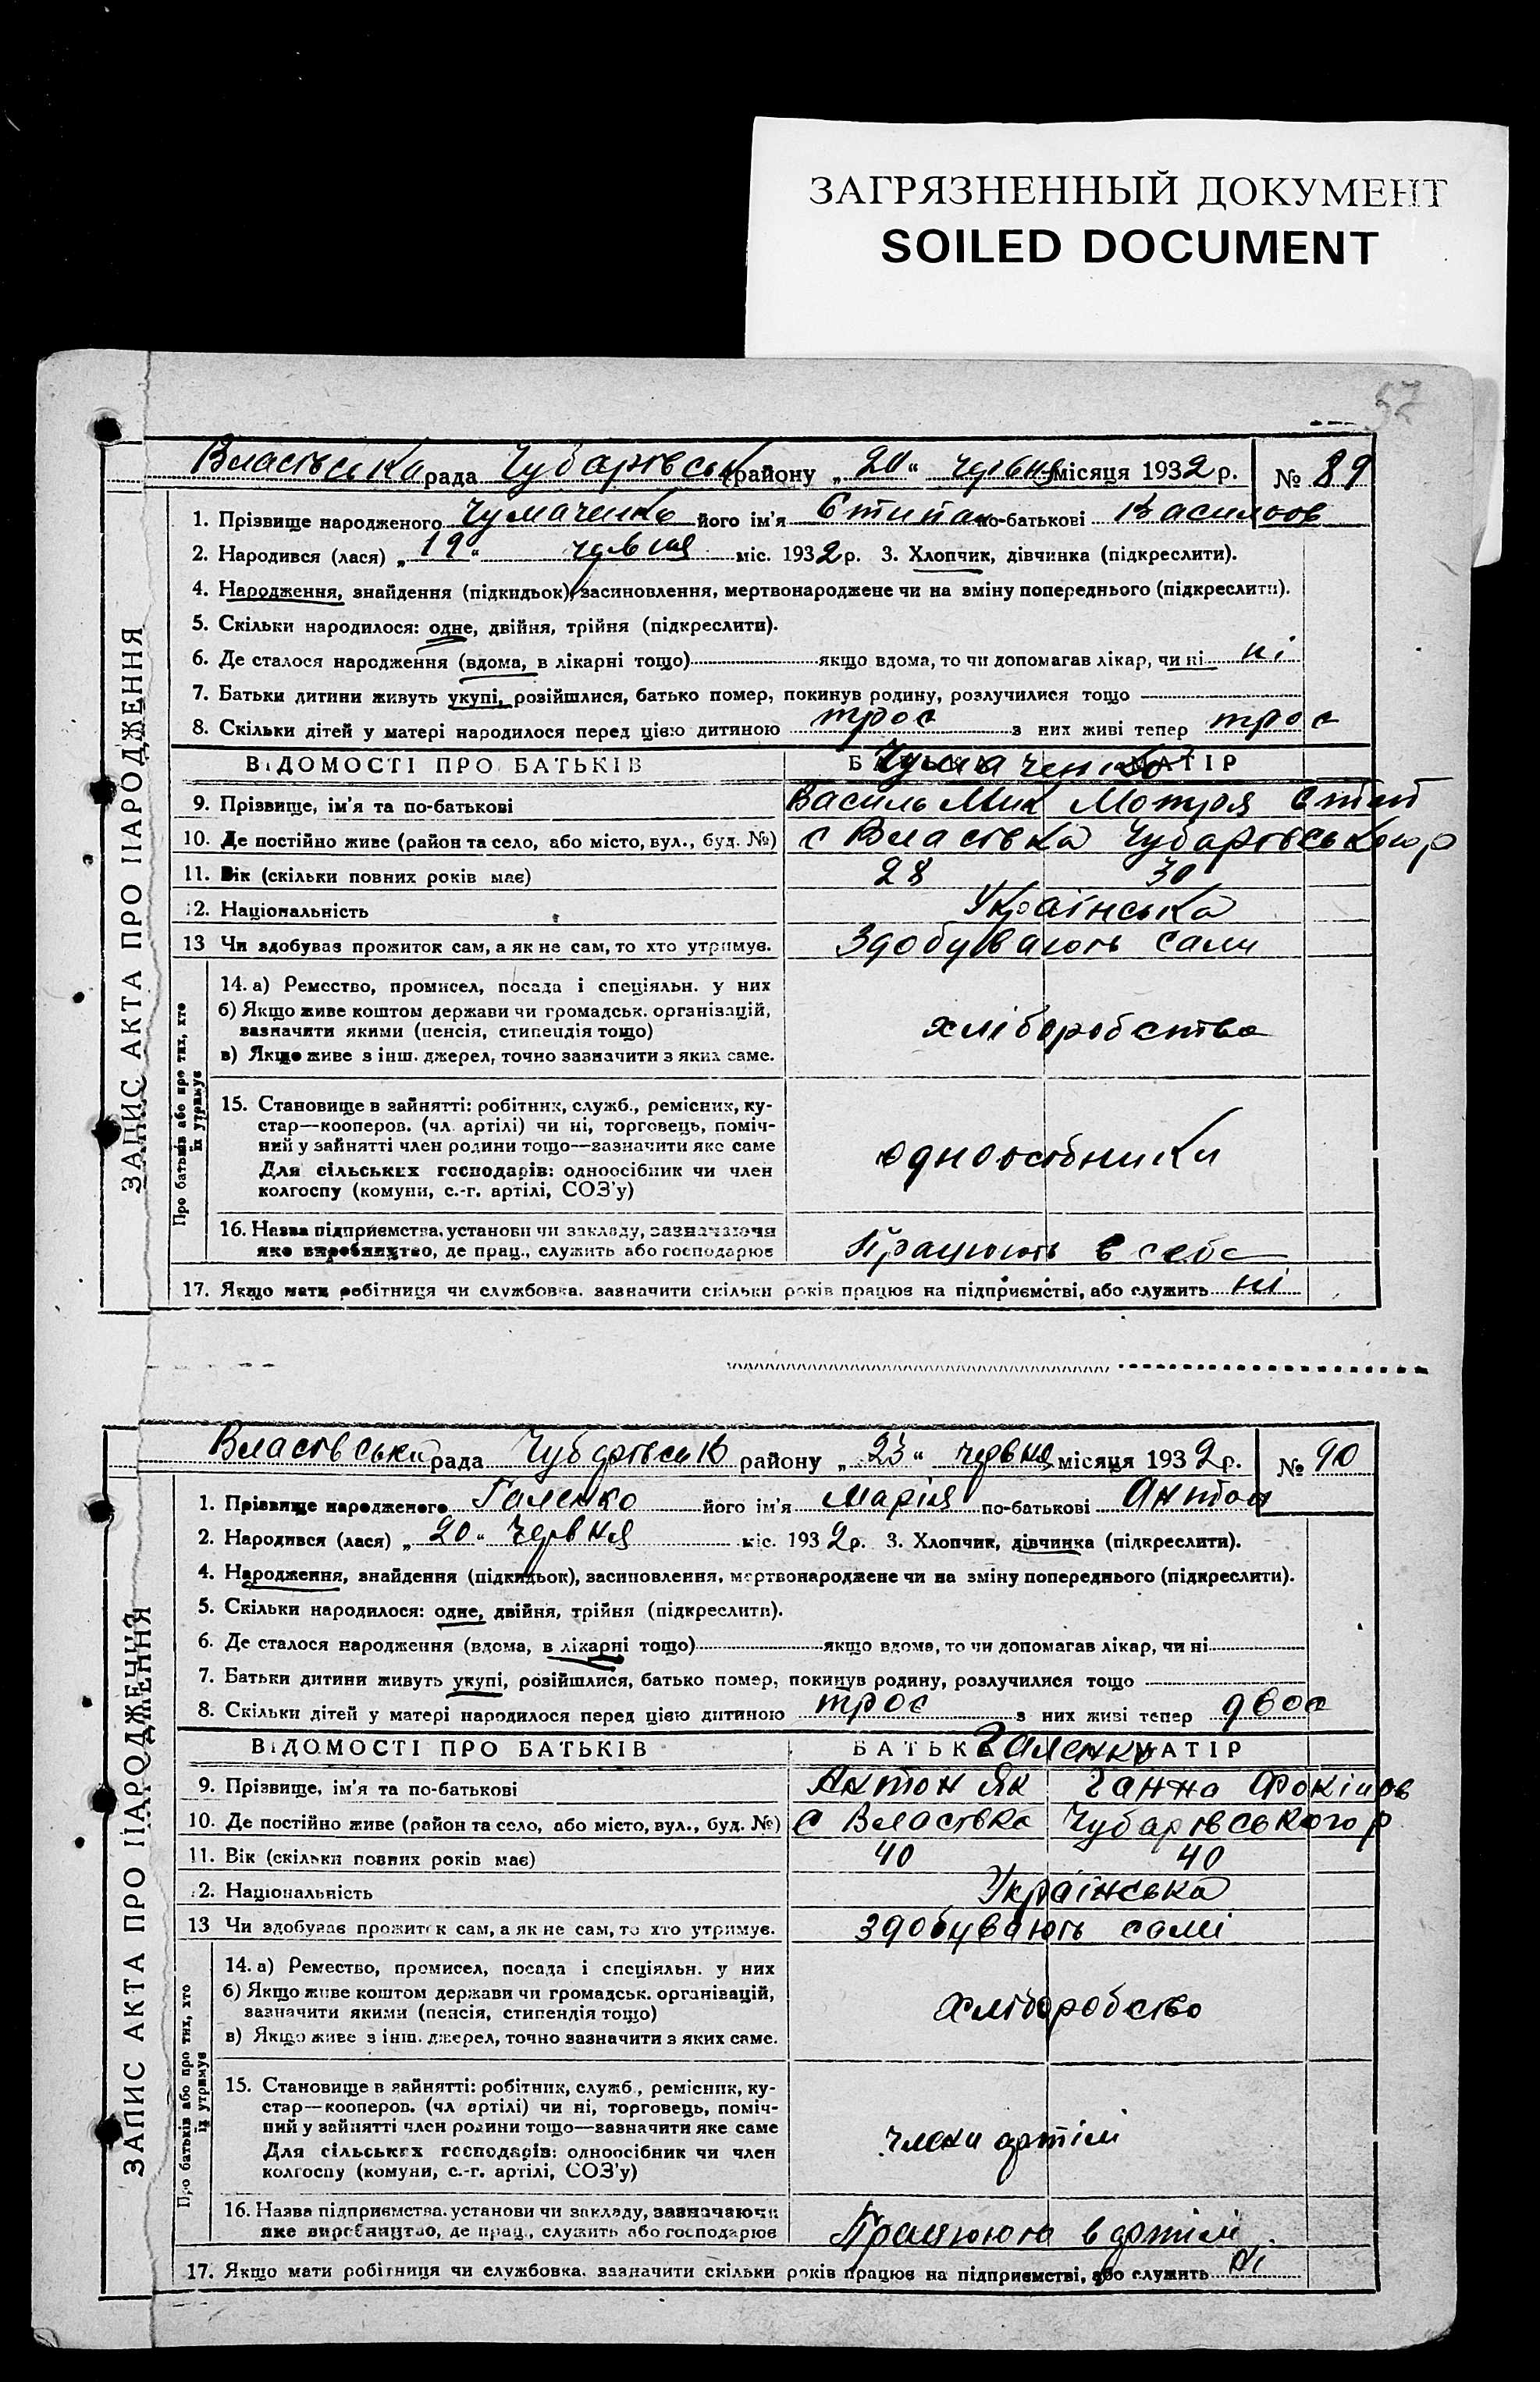 ЗАГРЯЗНЕННЫЙ ДОКУМЕНТ
SOILED DOCUMENT
57
Властівська рада Чубарівськ району „20“ червня місяця 1932 р. № 89
1. Прізвище народженого Чумаченко його ім'я Стипан по-батькові Васильов
2. Народився (лася) „19“ червня міс. 1932 р. 3. Хлопчик, дівчинка (підкреслити).
4. Народження, знайдення (підкидьок), засиновлення, мертвонароджене чи на зміну попереднього (підкреслити).
5. Скільки народилося: одне, двійня, трійня (підкреслити).
6. Де сталося народження (вдома, в лікарні тощо) якщо вдома, то чи допомагав лікар, чи ні ні
7. Батьки дитини живуть укупі, розійшлися, батько помер, покинув родину, розлучилися тощо
8. Скільки дітей у матері народилося перед цією дитиною троє з них живі тепер троє
ВІДОМОСТІ ПРО БАТЬКІВ БАТЬКО МАТІР
Чумаченко
9. Прізвище, ім'я та по-батькові Василь Мик Мотря Степ
10. Де постійно живе (район та село, або місто, вул., буд. №) с Властівка Чубарівського р
11. Вік (скільки повних років має) 28 30
12. Національність Українська
13 Чи здобуває прожиток сам, а як не сам, то хто утримує. Здобувають сами
14. а) Ремество, промисел, посада і спеціяльн. у них
б) Якщо живе коштом держави чи громадськ. організацій,
зазначити якими (пенсія, стипендія тощо) хліборобство
в) Якщо живе з інш. джерел, точно зазначити з яких саме.
15. Становище в зайнятті: робітник, служб., ремісник, ку-
стар—кооперов. (чл. артілі) чи ні, торговець, поміч-
ний у зайнятті член родини тощо—зазначити яке саме
Для сільських господарів: одноосібник чи член
колгоспу (комуни, с.-г. артілі, СОЗ'у) одноосібники
16. Назва підприємства, установи чи закладу, зазначаючи
яке виробництво, де прац., служить або господарює Працюють в себе
17. Якщо мати робітниця чи службовка, зазначити скільки років працює на підприємстві, або служить ні
Про батьків або про тих, хто їх утримує
ЗАПИС АКТА ПРО НАРОДЖЕННЯ
Властівська рада Чубарівськ району „23“ червня місяця 1932 р. № 90
1. Прізвище народженого Галенко його ім'я Марія по-батькові Антон
2. Народився (лася) „20“ червня міс. 1932 р. 3. Хлопчик, дівчинка (підкреслити).
4. Народження, знайдення (підкидьок), засиновлення, мертвонароджене чи на зміну попереднього (підкреслити).
5. Скільки народилося: одне, двійня, трійня (підкреслити).
6. Де сталося народження (вдома, в лікарні тощо) якщо вдома, то чи допомагав лікар, чи ні
7. Батьки дитини живуть укупі, розійшлися, батько помер, покинув родину, розлучилися тощо
8. Скільки дітей у матері народилося перед цією дитиною троє з них живі тепер двоє
ВІДОМОСТІ ПРО БАТЬКІВ БАТЬКО МАТІР
Галенко
9. Прізвище, ім'я та по-батькові Антон Як Ганна Фокіпов
10. Де постійно живе (район та село, або місто, вул., буд. №) С Властівка Чубарівського р
11. Вік (скільки повних років має) 40 40
12. Національність Українська
13 Чи здобуває прожиток сам, а як не сам, то хто утримує. здобувають самі
14. а) Ремество, промисел, посада і спеціяльн. у них
б) Якщо живе коштом держави чи громадськ. організацій,
зазначити якими (пенсія, стипендія тощо) хліборобство
в) Якщо живе з інш. джерел, точно зазначити з яких саме.
15. Становище в зайнятті: робітник, служб., ремісник, ку-
стар—кооперов. (чл артілі) чи ні, торговець, поміч-
ний у зайнятті член родини тощо—зазначити яке саме
Для сільських господарів: одноосібник чи член
колгоспу (комуни, с.-г. артілі, СОЗ'у) члени артілі
16. Назва підприємства, установи чи закладу, зазначаючи
яке виробництво, де прац., служить або господарює Працюють в артілі
17. Якщо мати робітниця чи службовка, зазначити скільки років працює на підприємстві, або служить ні
Про батьків або про тих, хто їх утримує
ЗАПИС АКТА ПРО НАРОДЖЕННЯ